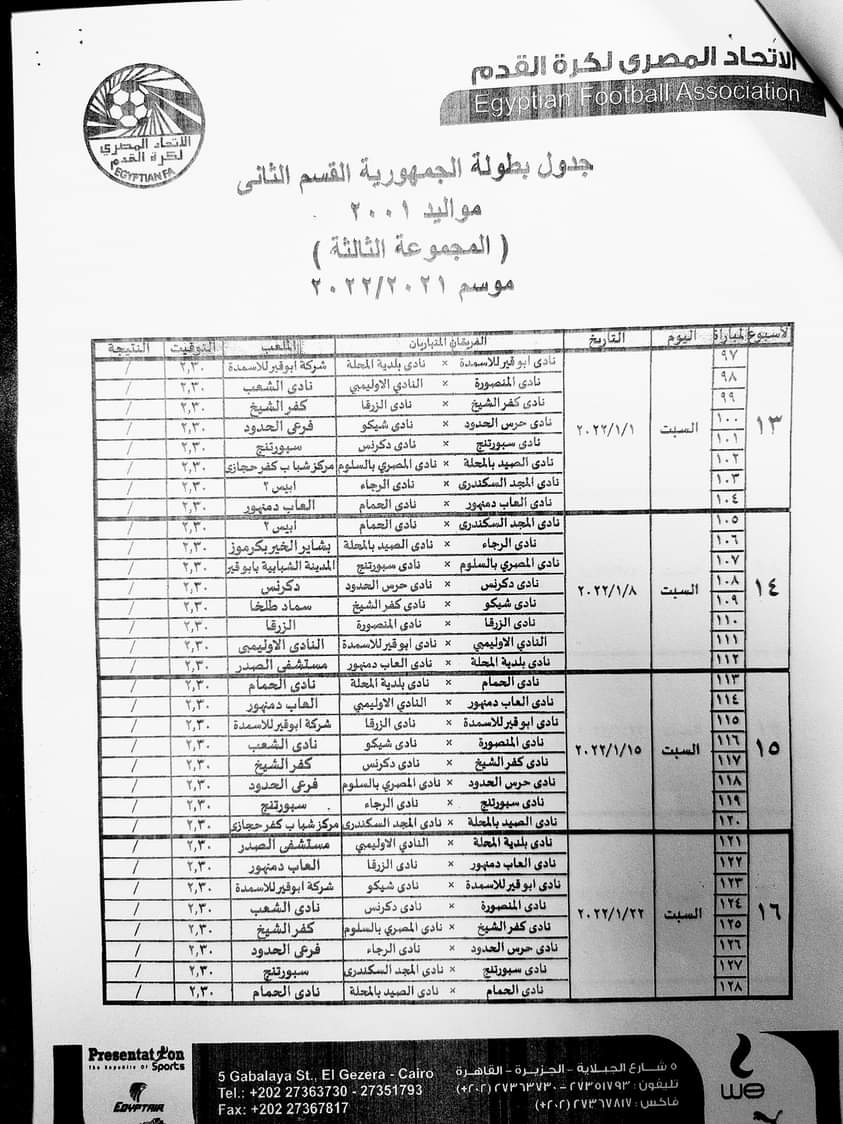 الاتحاد المصرى لكرة القدم
Egyptian Football Association
الاتحاد المصري
لكرة القدم
EGYPTIAN FA
جدول بطولة الجمهورية القسم الثانى
مواليد ٢٠٠١
( المجموعة الثالثة )
موسم ٢٠٢٢/٢٠٢١
الاسبوع المباراة اليوم التاريخ الفريقان المتباريان الملعب التوقيت النتيجة
١٣ السبت ٢٠٢٢/١/١
٩٧ نادى ابوقير للاسمدة × نادى بلدية المحلة شركة ابوقير للاسمدة ٢,٣٠ /
٩٨ نادى المنصورة × النادي الاوليمبي نادى الشعب ٢,٣٠ /
٩٩ نادى كفر الشيخ × نادى الزرقا كفر الشيخ ٢,٣٠ /
١٠٠ نادى حرس الحدود × نادى شيكو فرعى الحدود ٢,٣٠ /
١٠١ نادى سبورتنج × نادى دكرنس سبورتنج ٢,٣٠ /
١٠٢ نادى الصيد بالمحلة × نادى المصري بالسلوم مركز شباب كفر حجازى ٢,٣٠ /
١٠٣ نادى المجد السكندرى × نادى الرجاء ابيس ٢ ٢,٣٠ /
١٠٤ نادى العاب دمنهور × نادى الحمام العاب دمنهور ٢,٣٠ /
١٤ السبت ٢٠٢٢/١/٨
١٠٥ نادى المجد السكندرى × نادى الحمام ابيس ٢ ٢,٣٠ /
١٠٦ نادى الرجاء × نادى الصيد بالمحلة بشاير الخير بكرموز ٢,٣٠ /
١٠٧ نادى المصري بالسلوم × نادى سبورتنج المدينة الشبابية بابوقير ٢,٣٠ /
١٠٨ نادى دكرنس × نادى حرس الحدود دكرنس ٢,٣٠ /
١٠٩ نادى شيكو × نادى كفر الشيخ سماد طلخا ٢,٣٠ /
١١٠ نادى الزرقا × نادى المنصورة الزرقا ٢,٣٠ /
١١١ النادي الاوليمبي × نادى ابوقير للاسمدة النادى الاوليمبى ٢,٣٠ /
١١٢ نادى بلدية المحلة × نادى العاب دمنهور مستشفى الصدر ٢,٣٠ /
١٥ السبت ٢٠٢٢/١/١٥
١١٣ نادى الحمام × نادى بلدية المحلة نادى الحمام ٢,٣٠ /
١١٤ نادى العاب دمنهور × النادي الاوليمبي العاب دمنهور ٢,٣٠ /
١١٥ نادى ابوقير للاسمدة × نادى الزرقا شركة ابوقير للاسمدة ٢,٣٠ /
١١٦ نادى المنصورة × نادى شيكو نادى الشعب ٢,٣٠ /
١١٧ نادى كفر الشيخ × نادى دكرنس كفر الشيخ ٢,٣٠ /
١١٨ نادى حرس الحدود × نادى المصري بالسلوم فرعى الحدود ٢,٣٠ /
١١٩ نادى سبورتنج × نادى الرجاء سبورتنج ٢,٣٠ /
١٢٠ نادى الصيد بالمحلة × نادى المجد السكندرى مركز شباب كفر حجازى ٢,٣٠ /
١٦ السبت ٢٠٢٢/١/٢٢
١٢١ نادى بلدية المحلة × النادي الاوليمبي مستشفى الصدر ٢,٣٠ /
١٢٢ نادى العاب دمنهور × نادى الزرقا العاب دمنهور ٢,٣٠ /
١٢٣ نادى ابوقير للاسمدة × نادى شيكو شركة ابوقير للاسمدة ٢,٣٠ /
١٢٤ نادى المنصورة × نادى دكرنس نادى الشعب ٢,٣٠ /
١٢٥ نادى كفر الشيخ × نادى المصري بالسلوم كفر الشيخ ٢,٣٠ /
١٢٦ نادى حرس الحدود × نادى الرجاء فرعى الحدود ٢,٣٠ /
١٢٧ نادى سبورتنج × نادى المجد السكندرى سبورتنج ٢,٣٠ /
١٢٨ نادى الحمام × نادى الصيد بالمحلة نادى الحمام ٢,٣٠ /
Presentation
The Republic Of Sports
EGYPTAIR
5 Gabalaya St., El Gezera - Cairo
Tel.: +202 27363730 - 27351793
Fax: +202 27367817
٥ شارع الجبلاية - الجزيرة - القاهرة
تليفون : ٢٧٣٥١٧٩٣ - ٢٧٣٦٣٧٣٠ (٢٠٢+)
فاكس : ٢٧٣٦٧٨١٧ (٢٠٢+)
we